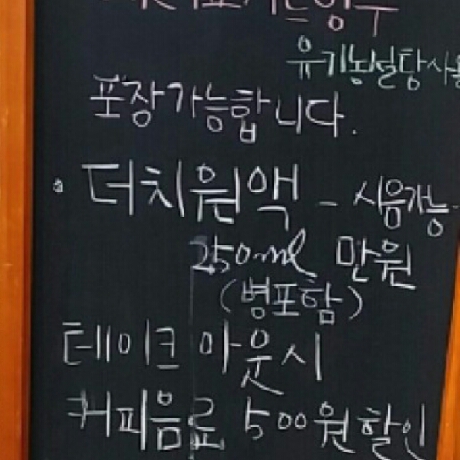 유기농설탕사용
포장가능합니다.
더치원액 - 시음가능
250ml 만원
(병포함)
테이크 아웃시
커피음료 500원 할인